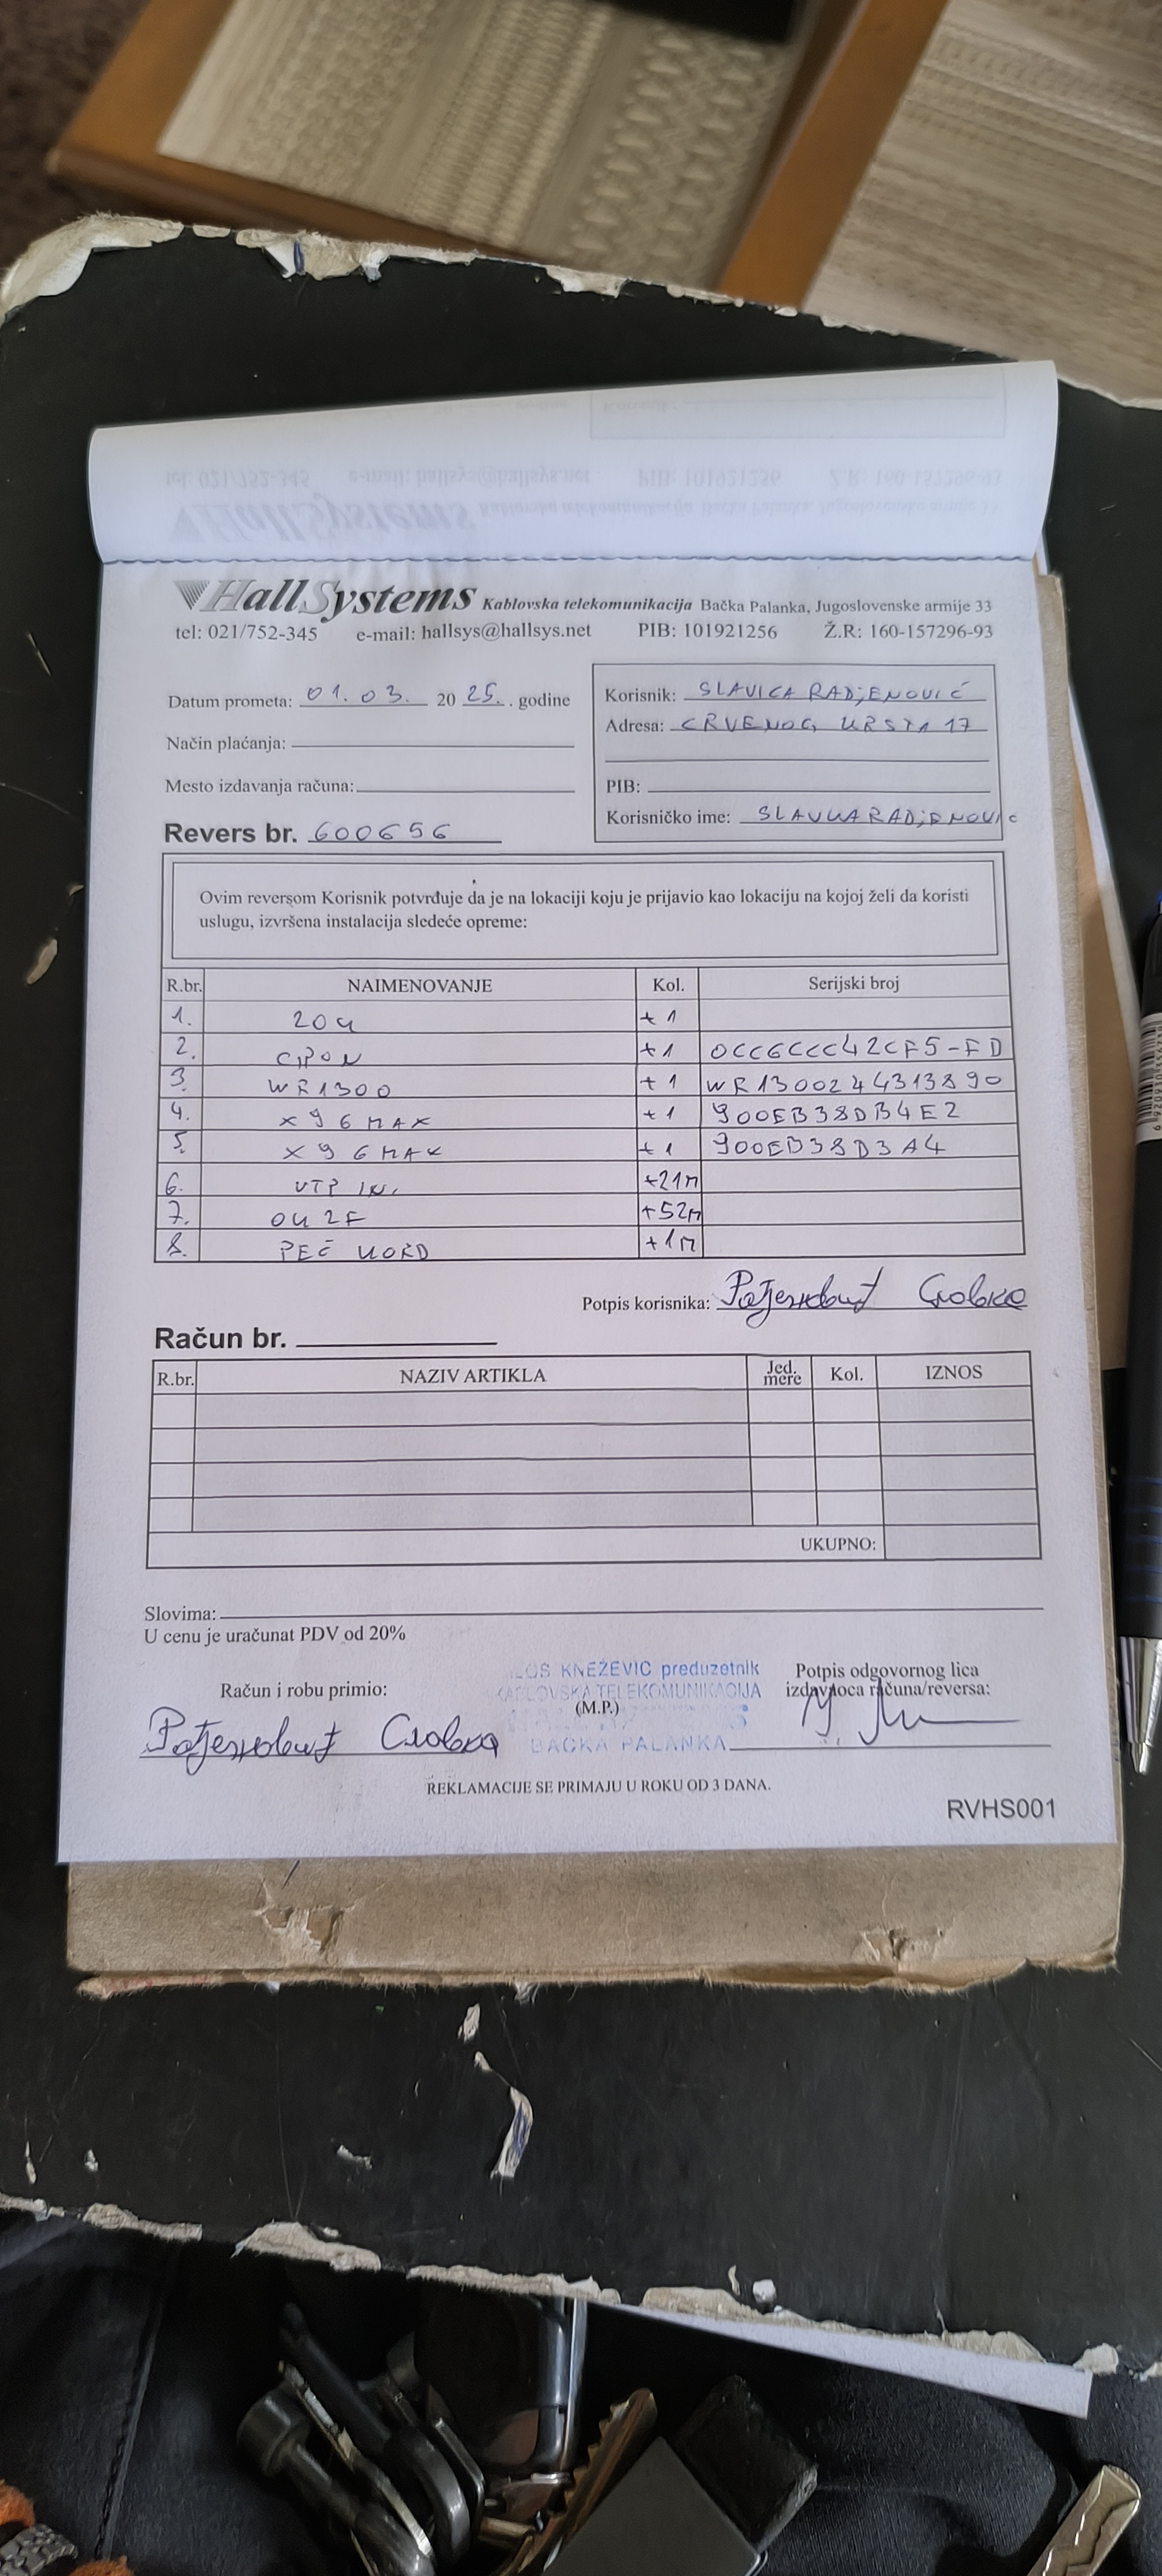 HallSystems Kablovska telekomunikacija Bačka Palanka, Jugoslovenske armije 33
tel: 021/752-345 e-mail: hallsys@hallsys.net PIB: 101921256 Ž.R: 160-157296-93
Datum prometa: 01.03. 2025. . godine
Način plaćanja:
Mesto izdavanja računa:
Revers br. 600656
Korisnik: SLAVICA RADjENOVIĆ
Adresa: CRVENOG KRSTA 17
PIB:
Korisničko ime: SLAVICARADjENOVIC
Ovim reversom Korisnik potvrđuje da je na lokaciji koju je prijavio kao lokaciju na kojoj želi da koristi
uslugu, izvršena instalacija sledeće opreme:
R.br. NAIMENOVANJE Kol. Serijski broj
1. ZOK +1
2. GPON +1 0CC6CCC42CF5-FD
3. WR1300 +1 WR1300244313890
4. X96MAX +1 900EB38DB4E2
5. X96MAX +1 900EB38D3A4
6. UTP IN. +21m
7. OK 2F +52m
8. PEČ KORD +1m
Potpis korisnika: Рађеновић Славка
Račun br.
R.br. NAZIV ARTIKLA Jed. mere Kol. IZNOS
UKUPNO:
Slovima:
U cenu je uračunat PDV od 20%
Račun i robu primio:
Рађеновић Славка
KNEŽEVIĆ preduzetnik
KABLOVSKA TELEKOMUNIKACIJA
(M.P.)
BAČKA PALANKA
Potpis odgovornog lica
izdavaoca računa/reversa:
REKLAMACIJE SE PRIMAJU U ROKU OD 3 DANA.
RVHS001